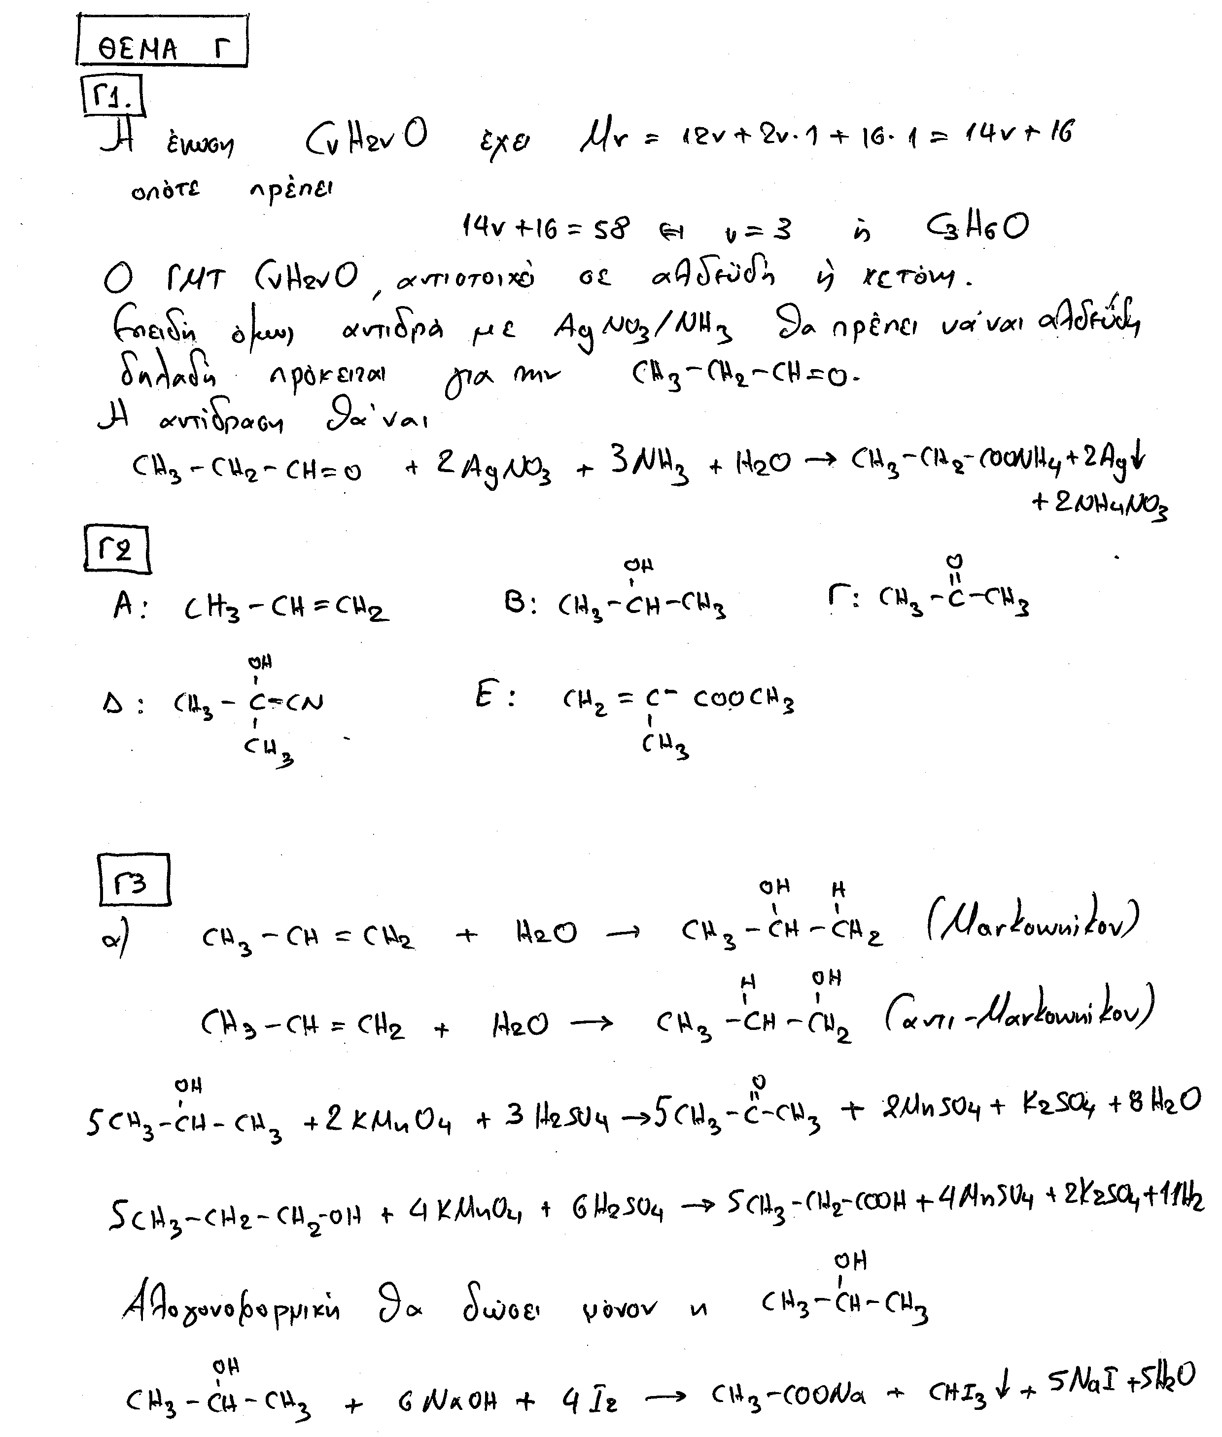 ΘΕΜΑ Γ
Γ1.
Η ένωση CνH2νO έχει Mr = 12ν + 2ν·1 + 16·1 = 14ν + 16
οπότε πρέπει
14ν + 16 = 58 ⇔ ν = 3 ή C3H6O
Ο ΓΜΤ CνH2νO, αντιστοιχεί σε αλδεΰδη ή κετόνη.
Επειδή όμως αντιδρά με AgNO3/NH3 θα πρέπει νά'ναι αλδεΰδη
δηλαδή πρόκειται για την CH3-CH2-CH=O.
Η αντίδραση θά'ναι
CH3-CH2-CH=O + 2AgNO3 + 3NH3 + H2O → CH3-CH2-COONH4 + 2Ag↓
+ 2NH4NO3
Γ2
OH O
A: CH3-CH=CH2 B: CH3-CH-CH3 Γ: CH3-C-CH3
OH
Δ: CH3-C-CN E: CH2=C-COOCH3
CH3 CH3
Γ3
OH H
α) CH3-CH=CH2 + H2O → CH3-CH-CH2 (Markownikov)
H OH
CH3-CH=CH2 + H2O → CH3-CH-CH2 (αντι-Markownikov)
OH O
5CH3-CH-CH3 + 2KMnO4 + 3H2SO4 → 5CH3-C-CH3 + 2MnSO4 + K2SO4 + 8H2O
5CH3-CH2-CH2-OH + 4KMnO4 + 6H2SO4 → 5CH3-CH2-COOH + 4MnSO4 + 2K2SO4 + 11H2
OH
Αλογονοφορμική θα δώσει μόνον η CH3-CH-CH3
OH
CH3-CH-CH3 + 6NaOH + 4I2 → CH3-COONa + CHI3↓ + 5NaI + 5H2O